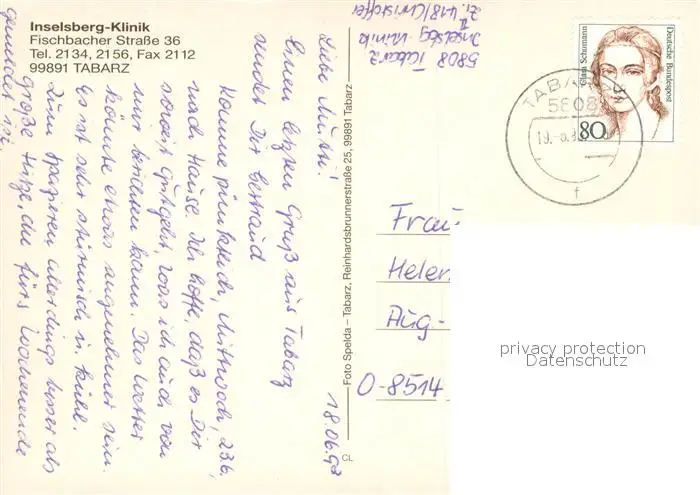 Inselsberg-Klinik
Fischbacher Straße 36
Tel. 2134, 2156, Fax 2112
99891 TABARZ
18.06.93
Liebe Mutti!
Einen letzten Gruß aus Tabarz
sendet Dir Bertraud
Komme pünktlich, Mittwoch, 23.6,
nach Hause. Ich hoffe, daß es Dir
soweit gut geht, was ich auch von
mir berichten kann. Das Wetter
könnte etwas angenehmer sein.
Es ist sehr stürmisch u. kühl.
Zum Spazieren allerdings besser als
große Hitze, die fürs Wochenende
gemeldet ist.
Foto Spelda – Tabarz, Reinhardsbrunnerstraße 25, 99891 Tabarz
CL
Zi. 418/Christoffer
Inselsbg-Klinik II
5808 Tabarz
Clara Schumann
Deutsche Bundespost
80
TABARZ
5808
19.-6.9
f
Frau
Helen
Aug-
O-8514
privacy protection
Datenschutz